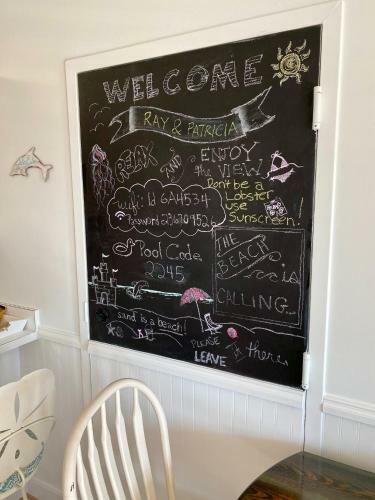 WELCOME
RAY & PATRICIA
RELAX
AND
ENJOY
THE VIEW
Don't be a
Lobster
use
Sunscreen!
wifi: Id 6A4534
Password 2316709526
Pool Code
2245
THE
BEACH
is
CALLING...
sand is a beach!
PLEASE
LEAVE
in there